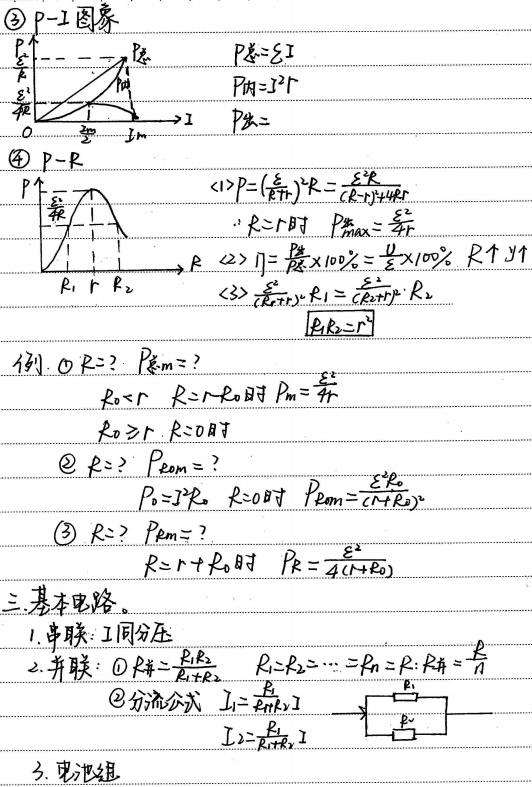 ③ P-I 图象
P
ε²/R
ε²/4R
O
Im/2
Im
I
P总
P内
P总=εI
P内=I²r
P出=
④ P-R
P
ε²/4R
R₁ r R₂
R
<1> P=(ε/R+r)²R=ε²R/(R-r)²+4Rr
∴R=r时 P出max=ε²/4r
<2> η=P出/P总×100%=U/ε×100% R↑ η↑
<3> ε²/(R₁+r)²·R₁=ε²/(R₂+r)²·R₂
R₁R₂=r²
例. ① R=? P总m=?
R₀<r R=r-R₀时 Pm=ε²/4r
R₀≥r R=0时
② R=? PR₀m=?
P₀=I²R₀ R=0时 PR₀m=ε²R₀/(r+R₀)²
③ R=? PRm=?
R=r+R₀时 PR=ε²/4(r+R₀)
三.基本电路。
1.串联: I同分压
2.并联: ① R并=R₁R₂/R₁+R₂ R₁=R₂=…=Rn=R: R并=R/n
② 分流公式 I₁=R₁/R₁+R₂ I
I₂=R₁/R₁+R₂ I
R₁
R₂
3.电池组